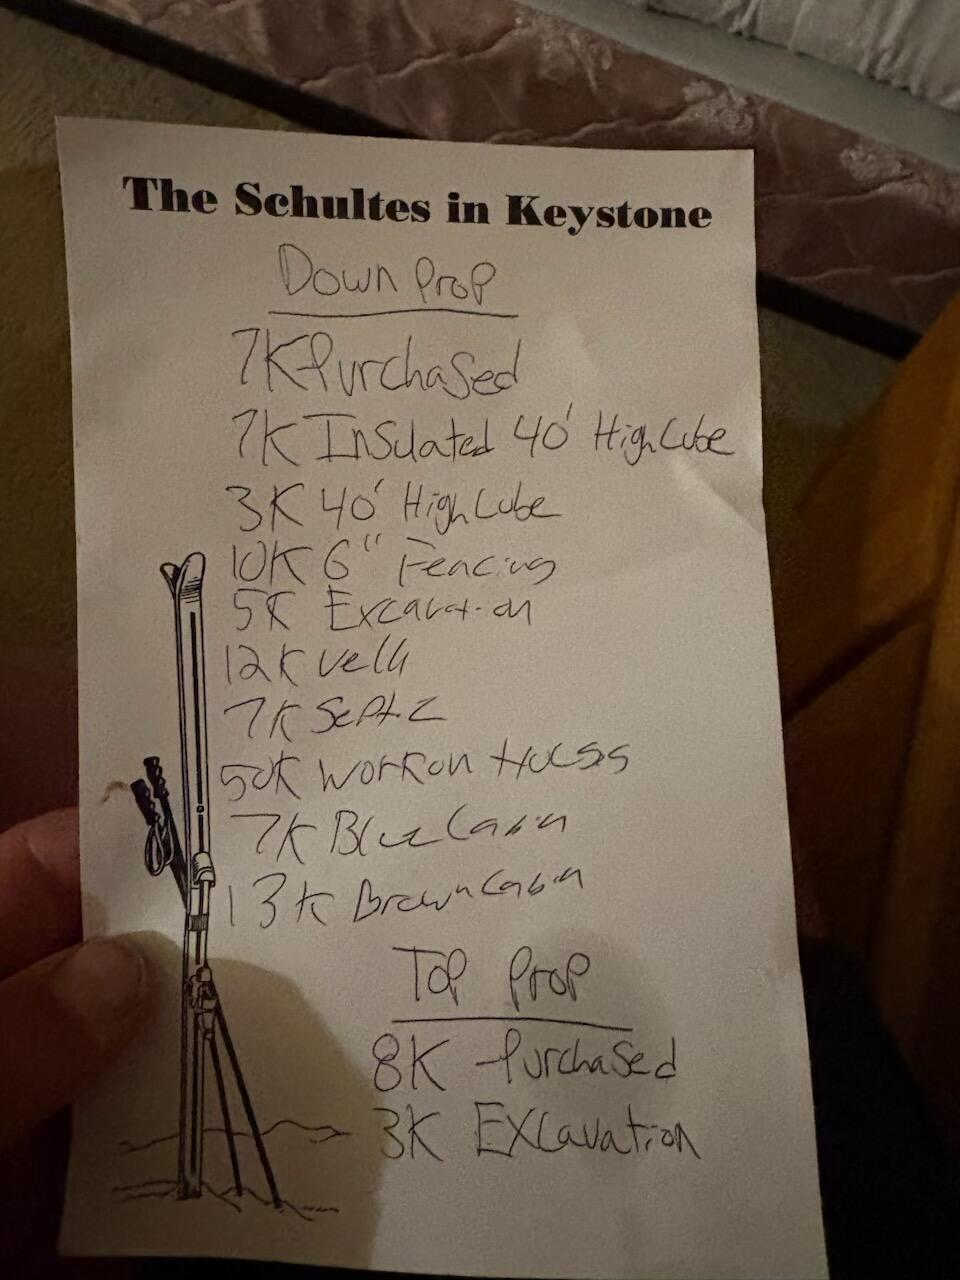 The Schultes in Keystone
Down Prop
7K Purchased
7K Insulated 40' High Cube
3K 40' High Cube
10K 6" Fencing
5K Excavation
12K Well
7K Septic
50K Work on House
7K Blue Cabin
13K Brown Cabin
Top Prop
8K Purchased
3K Excavation